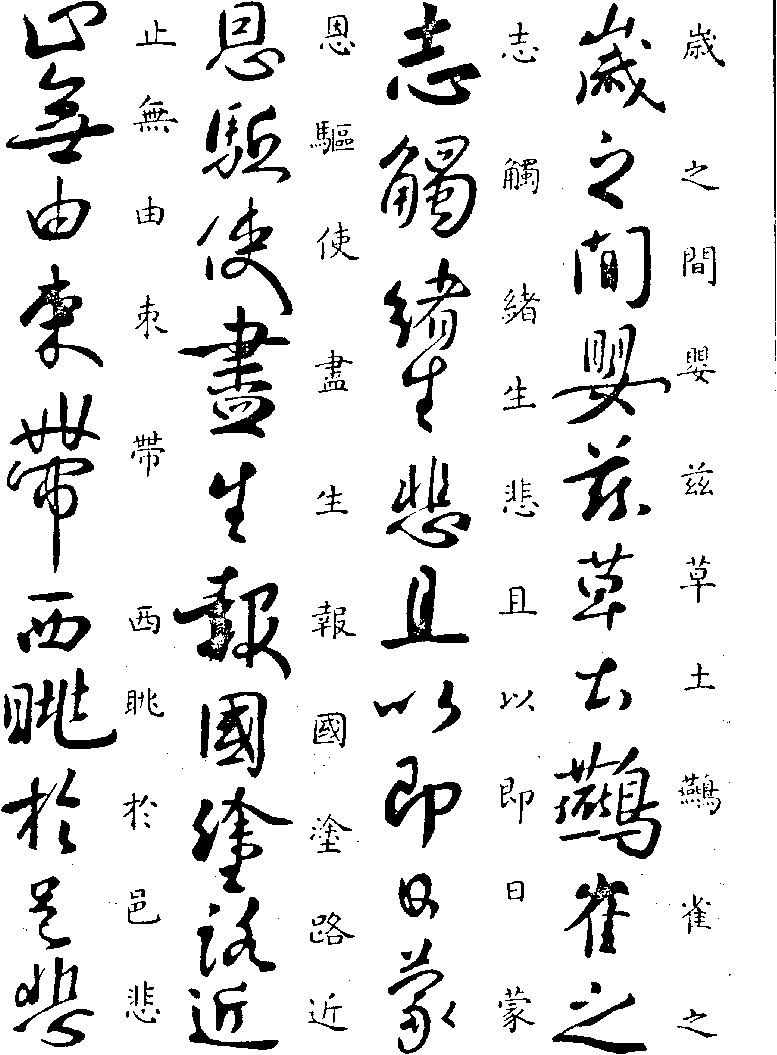 歳之間嬰兹草土鷰雀之
歳之間嬰兹草土鷰雀之
志觸緒生悲且以即日蒙
志觸緒生悲且以即日蒙
恩驅使盡生報國塗路近
恩驅使盡生報國塗路近
止無由束帶西眺於邑悲
止無由束帶西眺於邑悲